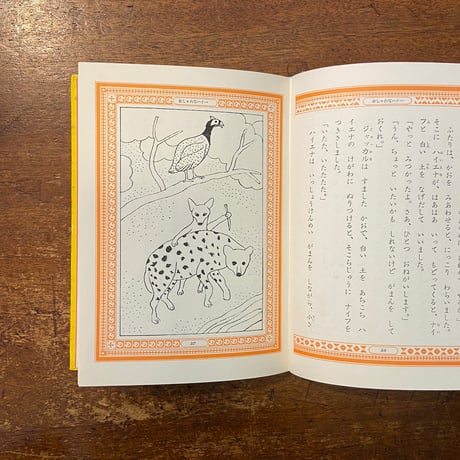 ふたりは、かおを みあわせると、こっそり わらいました。
そこに ハイエナが、はあはあ いって もどってくると、ナイ
フと 白い 土を なげだして いいました。
「やっと みつかったよ。さあ、ひとつ おねがいします。」
「うん、ちょっと いたいかも しれないけど がまんを して
おくれ。」
ジャッカルは すました かおで、白い 土を あちこち ハ
イエナの けがわに ぬりつけると、そこらじゅうに ナイフを
つきさしました。
「いたた、いたたた。」
ハイエナは いっしょうけんめい がまんを しながら、小さ
27